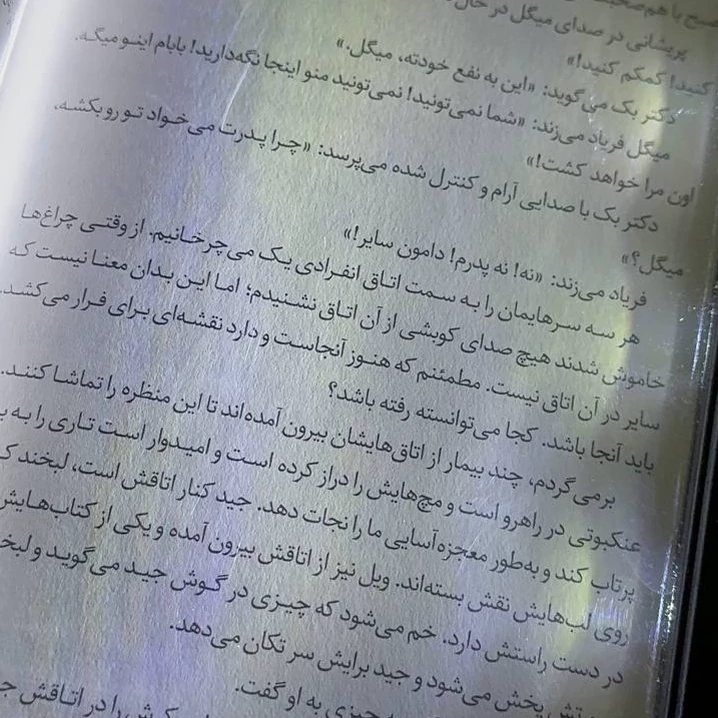 صبح با هم صحبت
پریشانی در صدای میگل در حال
کنید! کمکم کنید!»
دکتر بک می‌گوید: «این به نفع خودته، میگل.»
میگل فریاد می‌زند: «شما نمی‌تونید! نمی‌تونید منو اینجا نگه‌دارید! بابام اینو میگه.
اون مرا خواهد کشت!»
دکتر بک با صدایی آرام و کنترل شده می‌پرسد: «چرا پدرت می‌خواد تو رو بکشه،
میگل؟»
فریاد می‌زند: «نه! نه پدرم! دامون سایر!»
هر سه سرهایمان را به سمت اتاق انفرادی یک می‌چرخانیم. از وقتی چراغ‌ها
خاموش شدند هیچ صدای کوبشی از آن اتاق نشنیدم؛ اما این بدان معنا نیست که
سایر در آن اتاق نیست. مطمئنم که هنوز آنجاست و دارد نقشه‌ای برای فرار می‌کشد.
باید آنجا باشد. کجا می‌توانسته رفته باشد؟
برمی‌گردم، چند بیمار از اتاق‌هایشان بیرون آمده‌اند تا این منظره را تماشا کنند.
عنکبوتی در راهرو است و مچ‌هایش را دراز کرده است و امیدوار است تاری را به
پرتاب کند و به‌طور معجزه‌آسایی ما را نجات دهد. جید کنار اتاقش است، لبخند
روی لب‌هایش نقش بسته‌اند. ویل نیز از اتاقش بیرون آمده و یکی از کتاب‌هایش
در دست راستش دارد. خم می‌شود که چیزی در گوش جید می‌گوید و
پخش می‌شود و جید برایش سر تکان می‌دهد.
چیزی به او گفت.
را در اتاقش